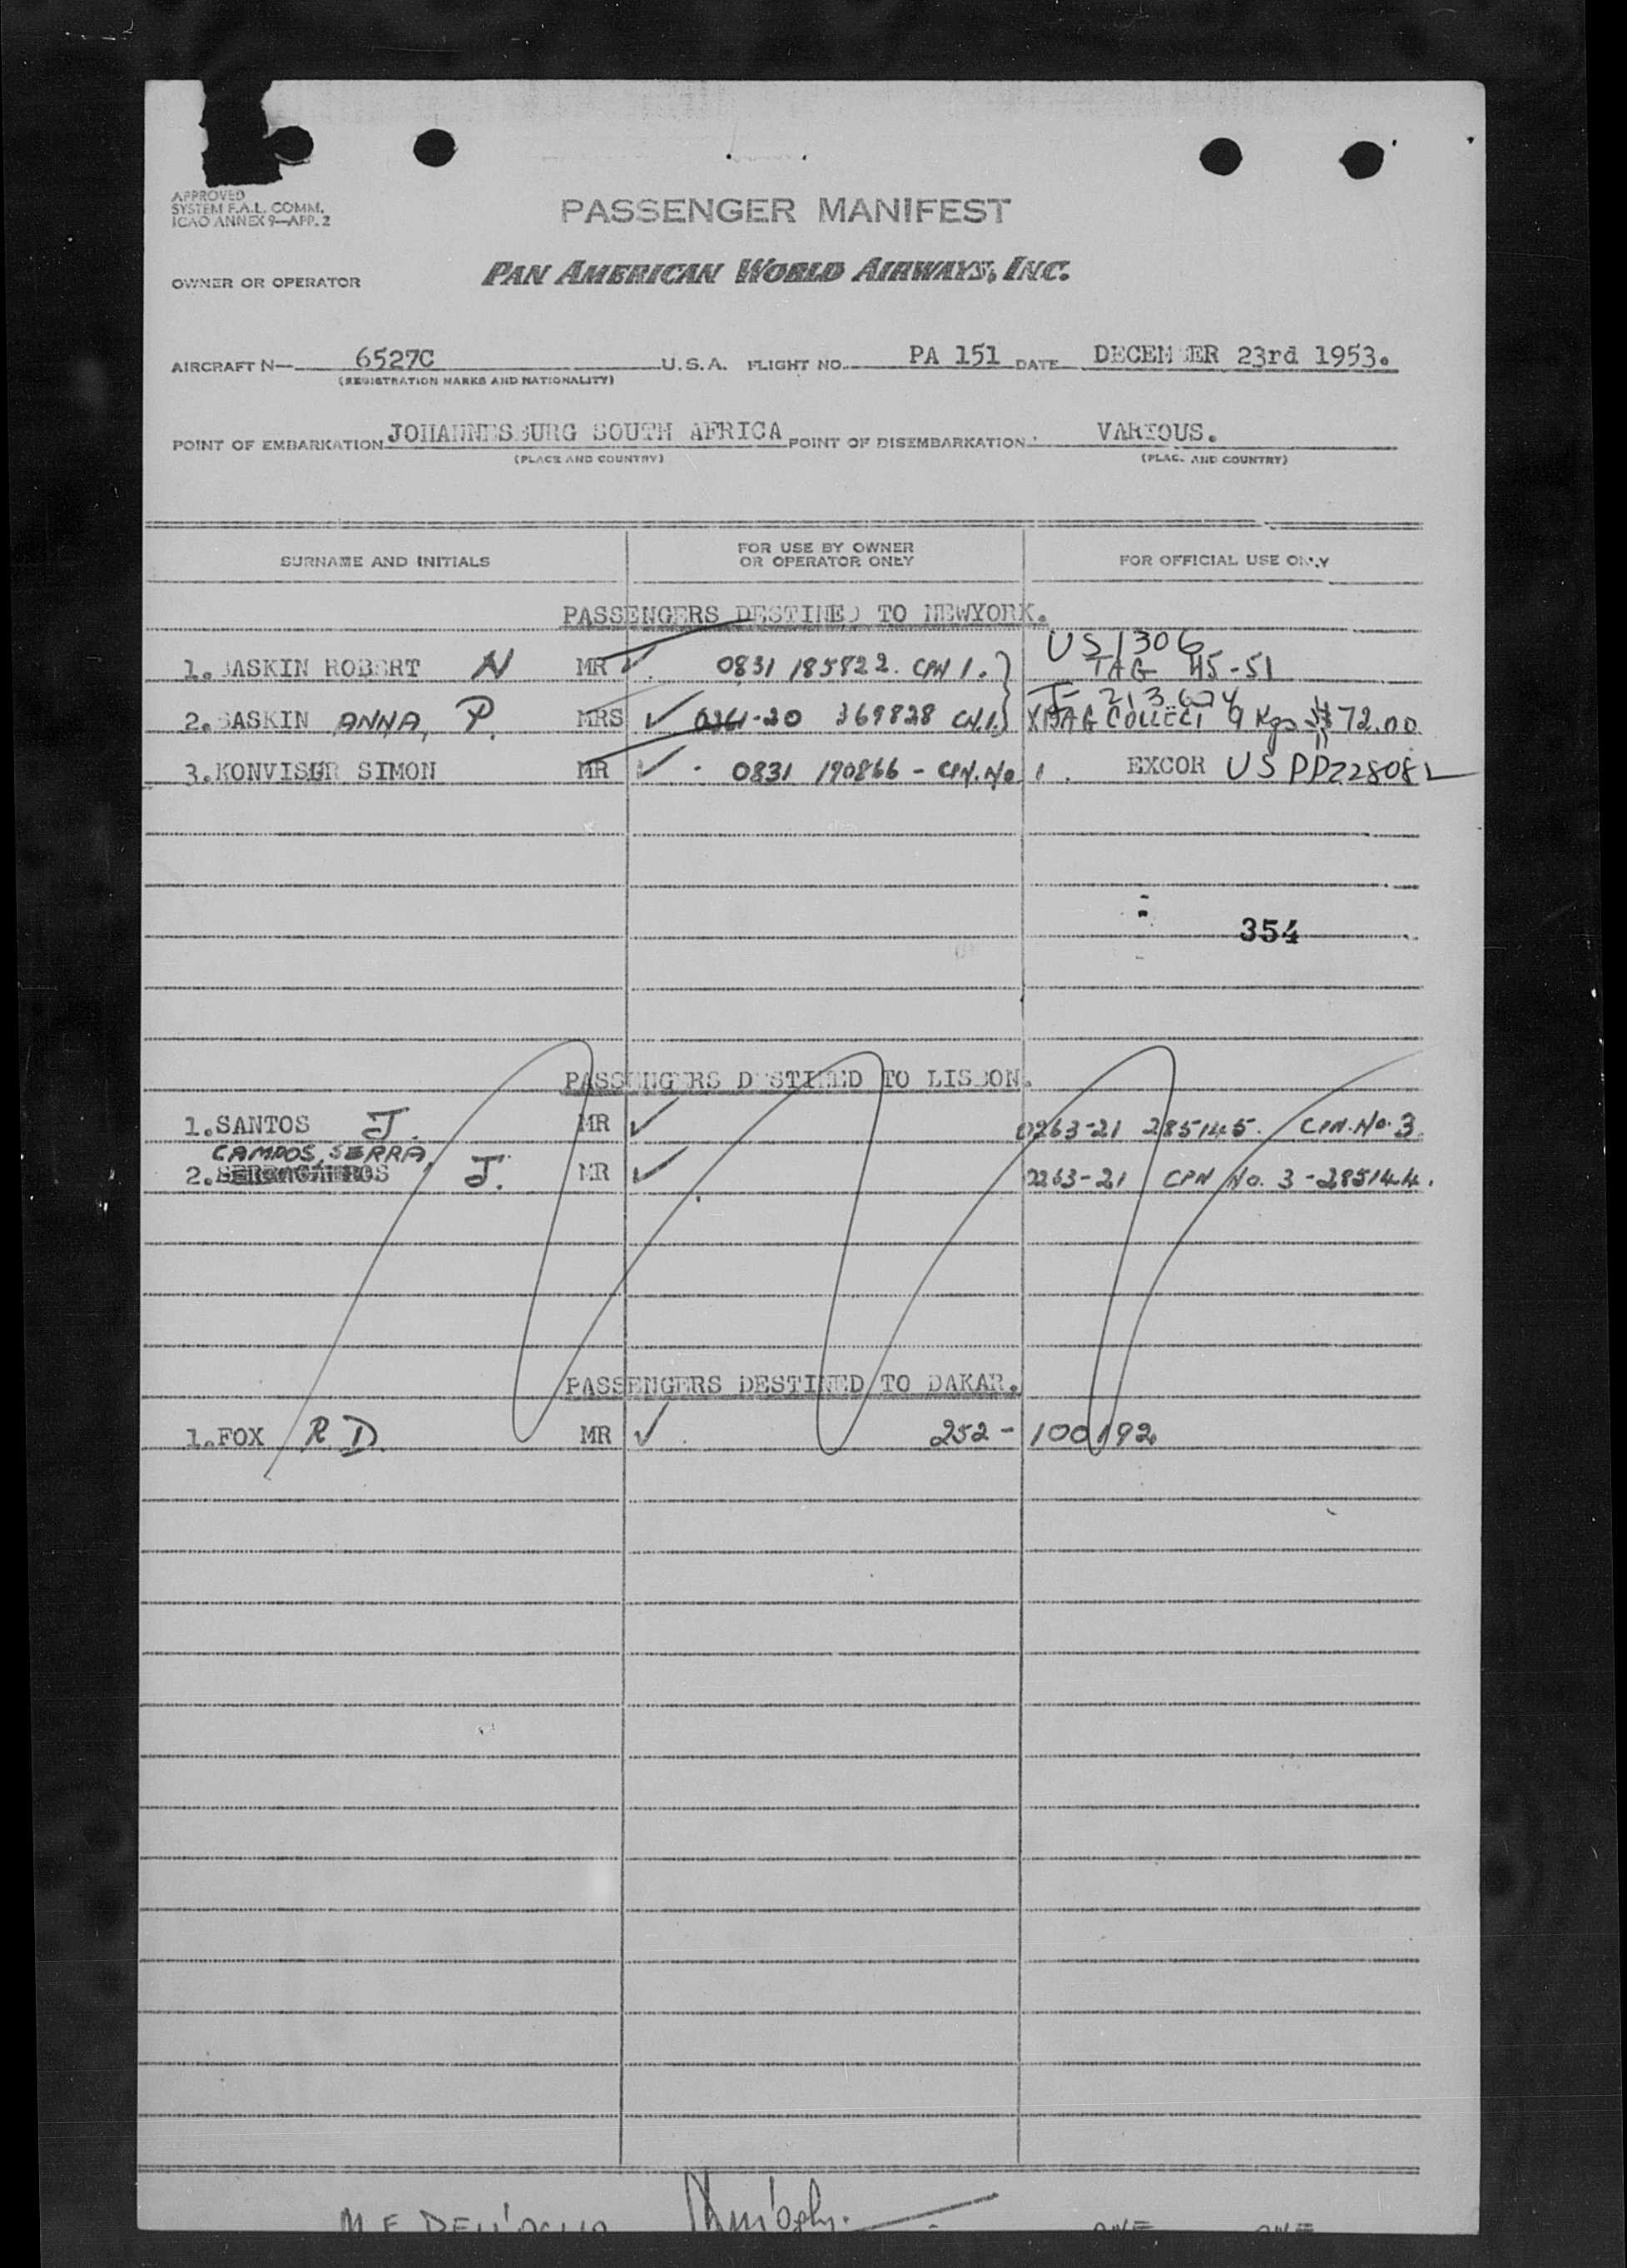 APPROVED
SYSTEM F.A.L. COMM.
ICAO ANNEX 9—APP. 2
PASSENGER MANIFEST
OWNER OR OPERATOR PAN AMERICAN WORLD AIRWAYS, INC.
AIRCRAFT N— 6527C U.S.A. FLIGHT NO. PA 151 DATE DECEMBER 23rd 1953.
(REGISTRATION MARKS AND NATIONALITY)
POINT OF EMBARKATION JOHANNESBURG SOUTH AFRICA POINT OF DISEMBARKATION VARIOUS.
(PLACE AND COUNTRY) (PLACE AND COUNTRY)
SURNAME AND INITIALS FOR USE BY OWNER OR OPERATOR ONLY FOR OFFICIAL USE ONLY
PASSENGERS DESTINED TO NEWYORK.
US 1306
1. BASKIN ROBERT N MR ✓ 0831 185822. CPN 1. TAG 45-51
J- 213604
2. BASKIN ANNA, P. MRS ✓ 0261-20 369828 CN.1. COLLECT 9 Kgs $72.00
3. KONVISER SIMON MR ✓ 0831 190866 - CPN. No 1. EXCOR US PP228082
354
PASSENGERS DESTINED TO LISBON.
1. SANTOS J. MR ✓ 0263-21 285145. CPN. No. 3.
CAMPOS, SERRA,
2. J. MR ✓ 0263-21 CPN No. 3 - 285144.
PASSENGERS DESTINED TO DAKAR.
1. FOX R.D. MR ✓ 252 - 100192